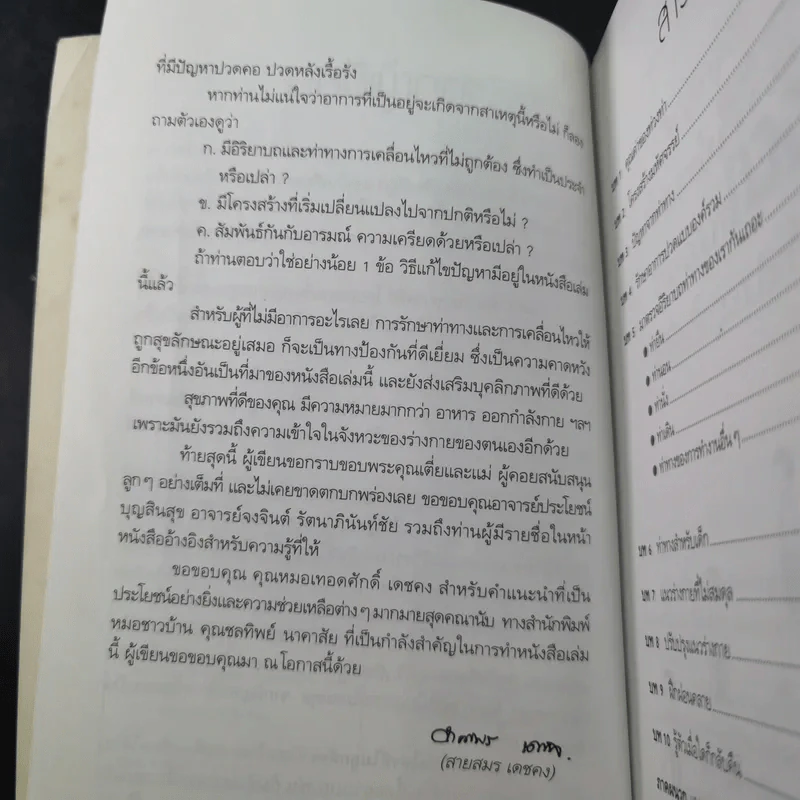 ที่มีปัญหาปวดคอ ปวดหลังเรื้อรัง
หากท่านไม่แน่ใจว่าอาการที่เป็นอยู่จะเกิดจากสาเหตุนี้หรือไม่ ก็ลอง
ถามตัวเองดูว่า
ก. มีอิริยาบถและท่าทางการเคลื่อนไหวที่ไม่ถูกต้อง ซึ่งทำเป็นประจำ
หรือเปล่า ?
ข. มีโครงสร้างที่เริ่มเปลี่ยนแปลงไปจากปกติหรือไม่ ?
ค. สัมพันธ์กันกับอารมณ์ ความเครียดด้วยหรือเปล่า ?
ถ้าท่านตอบว่าใช่อย่างน้อย 1 ข้อ วิธีแก้ไขปัญหามีอยู่ในหนังสือเล่ม
นี้แล้ว
สำหรับผู้ที่ไม่มีอาการอะไรเลย การรักษาท่าทางและการเคลื่อนไหวให้
ถูกสุขลักษณะอยู่เสมอ ก็จะเป็นทางป้องกันที่ดีเยี่ยม ซึ่งเป็นความคาดหวัง
อีกข้อหนึ่งอันเป็นที่มาของหนังสือเล่มนี้ และยังส่งเสริมบุคลิกภาพที่ดีด้วย
สุขภาพที่ดีของคุณ มีความหมายมากกว่า อาหาร ออกกำลังกาย ฯลฯ
เพราะมันยังรวมถึงความเข้าใจในจังหวะของร่างกายของตนเองอีกด้วย
ท้ายสุดนี้ ผู้เขียนขอกราบขอบพระคุณเตี่ยและแม่ ผู้คอยสนับสนุน
ลูกๆ อย่างเต็มที่ และไม่เคยขาดตกบกพร่องเลย ขอขอบคุณอาจารย์ประโยชน์
บุญสินสุข อาจารย์จงจินต์ รัตนาภินันท์ชัย รวมถึงท่านผู้มีรายชื่อในหน้า
หนังสืออ้างอิงสำหรับความรู้ที่ให้
ขอขอบคุณ คุณหมอเทอดศักดิ์ เดชคง สำหรับคำแนะนำที่เป็น
ประโยชน์อย่างยิ่งและความช่วยเหลือต่างๆ มากมายสุดคณานับ ทางสำนักพิมพ์
หมอชาวบ้าน คุณชลทิพย์ นาคาสัย ที่เป็นกำลังสำคัญในการทำหนังสือเล่ม
นี้ ผู้เขียนขอขอบคุณมา ณ โอกาสนี้ด้วย
(สายสมร เดชคง)
บท 1 คุณค่าของท่วงท่า
บท 2 โครงสร้างมหัศจรรย์
บท 3 ปัญหาจากท่าทาง
บท 4 รักษาอาการปวดแบบองค์รวม
บท 5 มาตรวจอิริยาบถท่าทางของเรากันเถอะ
• ท่ายืน
• ท่านอน
• ท่านั่ง
• ท่าเดิน
• ท่าทางของการทำงานอื่น ๆ
บท 6 ท่าทางสำหรับเด็ก
บท 7 แนวร่างกายที่ไม่สมดุล
บท 8 ปรับปรุงแนวร่างกาย
บท 9 ฝึกผ่อนคลาย
บท 10 รู้สึกเมื่อใดก็กลับคืน
ภาคผนวก